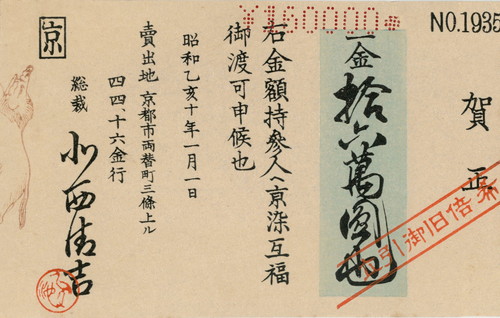 NO.1935
賀正
¥160000*
一金拾六萬圓也
倍旧御引
右金額持參人へ京染互福
御渡可申候也
昭和乙亥十年一月一日
賣出地 京都市両替町三條上ル
四四十六金行
總裁 小西清吉
京